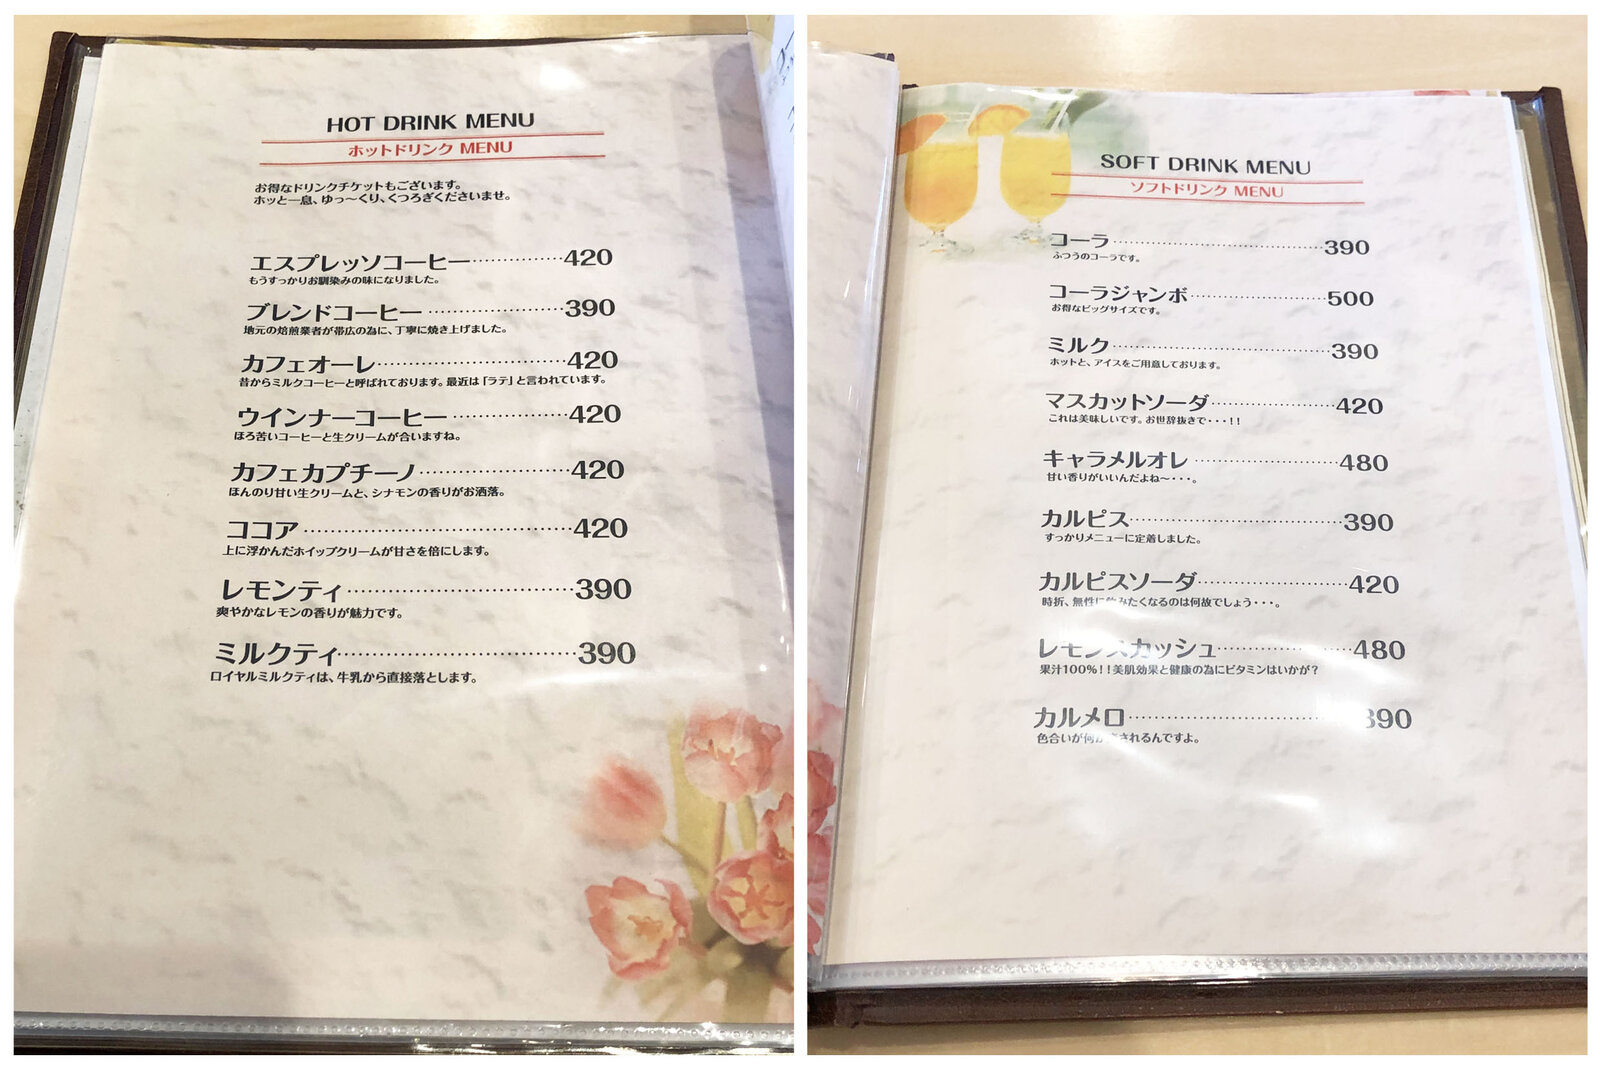 HOT DRINK MENU
ホットドリンク MENU
お得なドリンクチケットもございます。
ホッと一息、ゆっ〜くり、くつろぎくださいませ。
エスプレッソコーヒー……………420
もうすっかりお馴染みの味になりました。
ブレンドコーヒー……………………390
地元の焙煎業者が帯広の為に、丁寧に焼き上げました。
カフェオーレ……………………………420
昔からミルクコーヒーと呼ばれております。最近は「ラテ」と言われています。
ウインナーコーヒー…………………420
ほろ苦いコーヒーと生クリームが合いますね。
カフェカプチーノ………………………420
ほんのり甘い生クリームと、シナモンの香りがお洒落。
ココア…………………………………………420
上に浮かんだホイップクリームが甘さを倍にします。
レモンティ……………………………………390
爽やかなレモンの香りが魅力です。
ミルクティ……………………………………390
ロイヤルミルクティは、牛乳から直接落とします。
SOFT DRINK MENU
ソフトドリンク MENU
コーラ…………………………………390
ふつうのコーラです。
コーラジャンボ……………………500
お得なビッグサイズです。
ミルク…………………………………390
ホットと、アイスをご用意しております。
マスカットソーダ…………………420
これは美味しいです。お世辞抜きで・・・!!
キャラメルオレ……………………480
甘い香りがいいんだよね〜・・・。
カルピス………………………………390
すっかりメニューに定着しました。
カルピスソーダ……………………420
時折、無性に飲みたくなるのは何故でしょう・・・。
レモンスカッシュ…………………480
果汁100%!!美肌効果と健康の為にビタミンはいかが?
カルメロ………………………………390
色合いが何か されるんですよ。